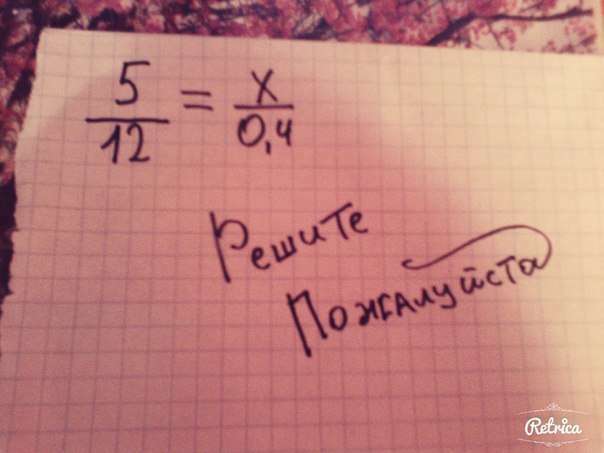 5/12 = x/0,4
Решите
Пожалуйста
Retrica